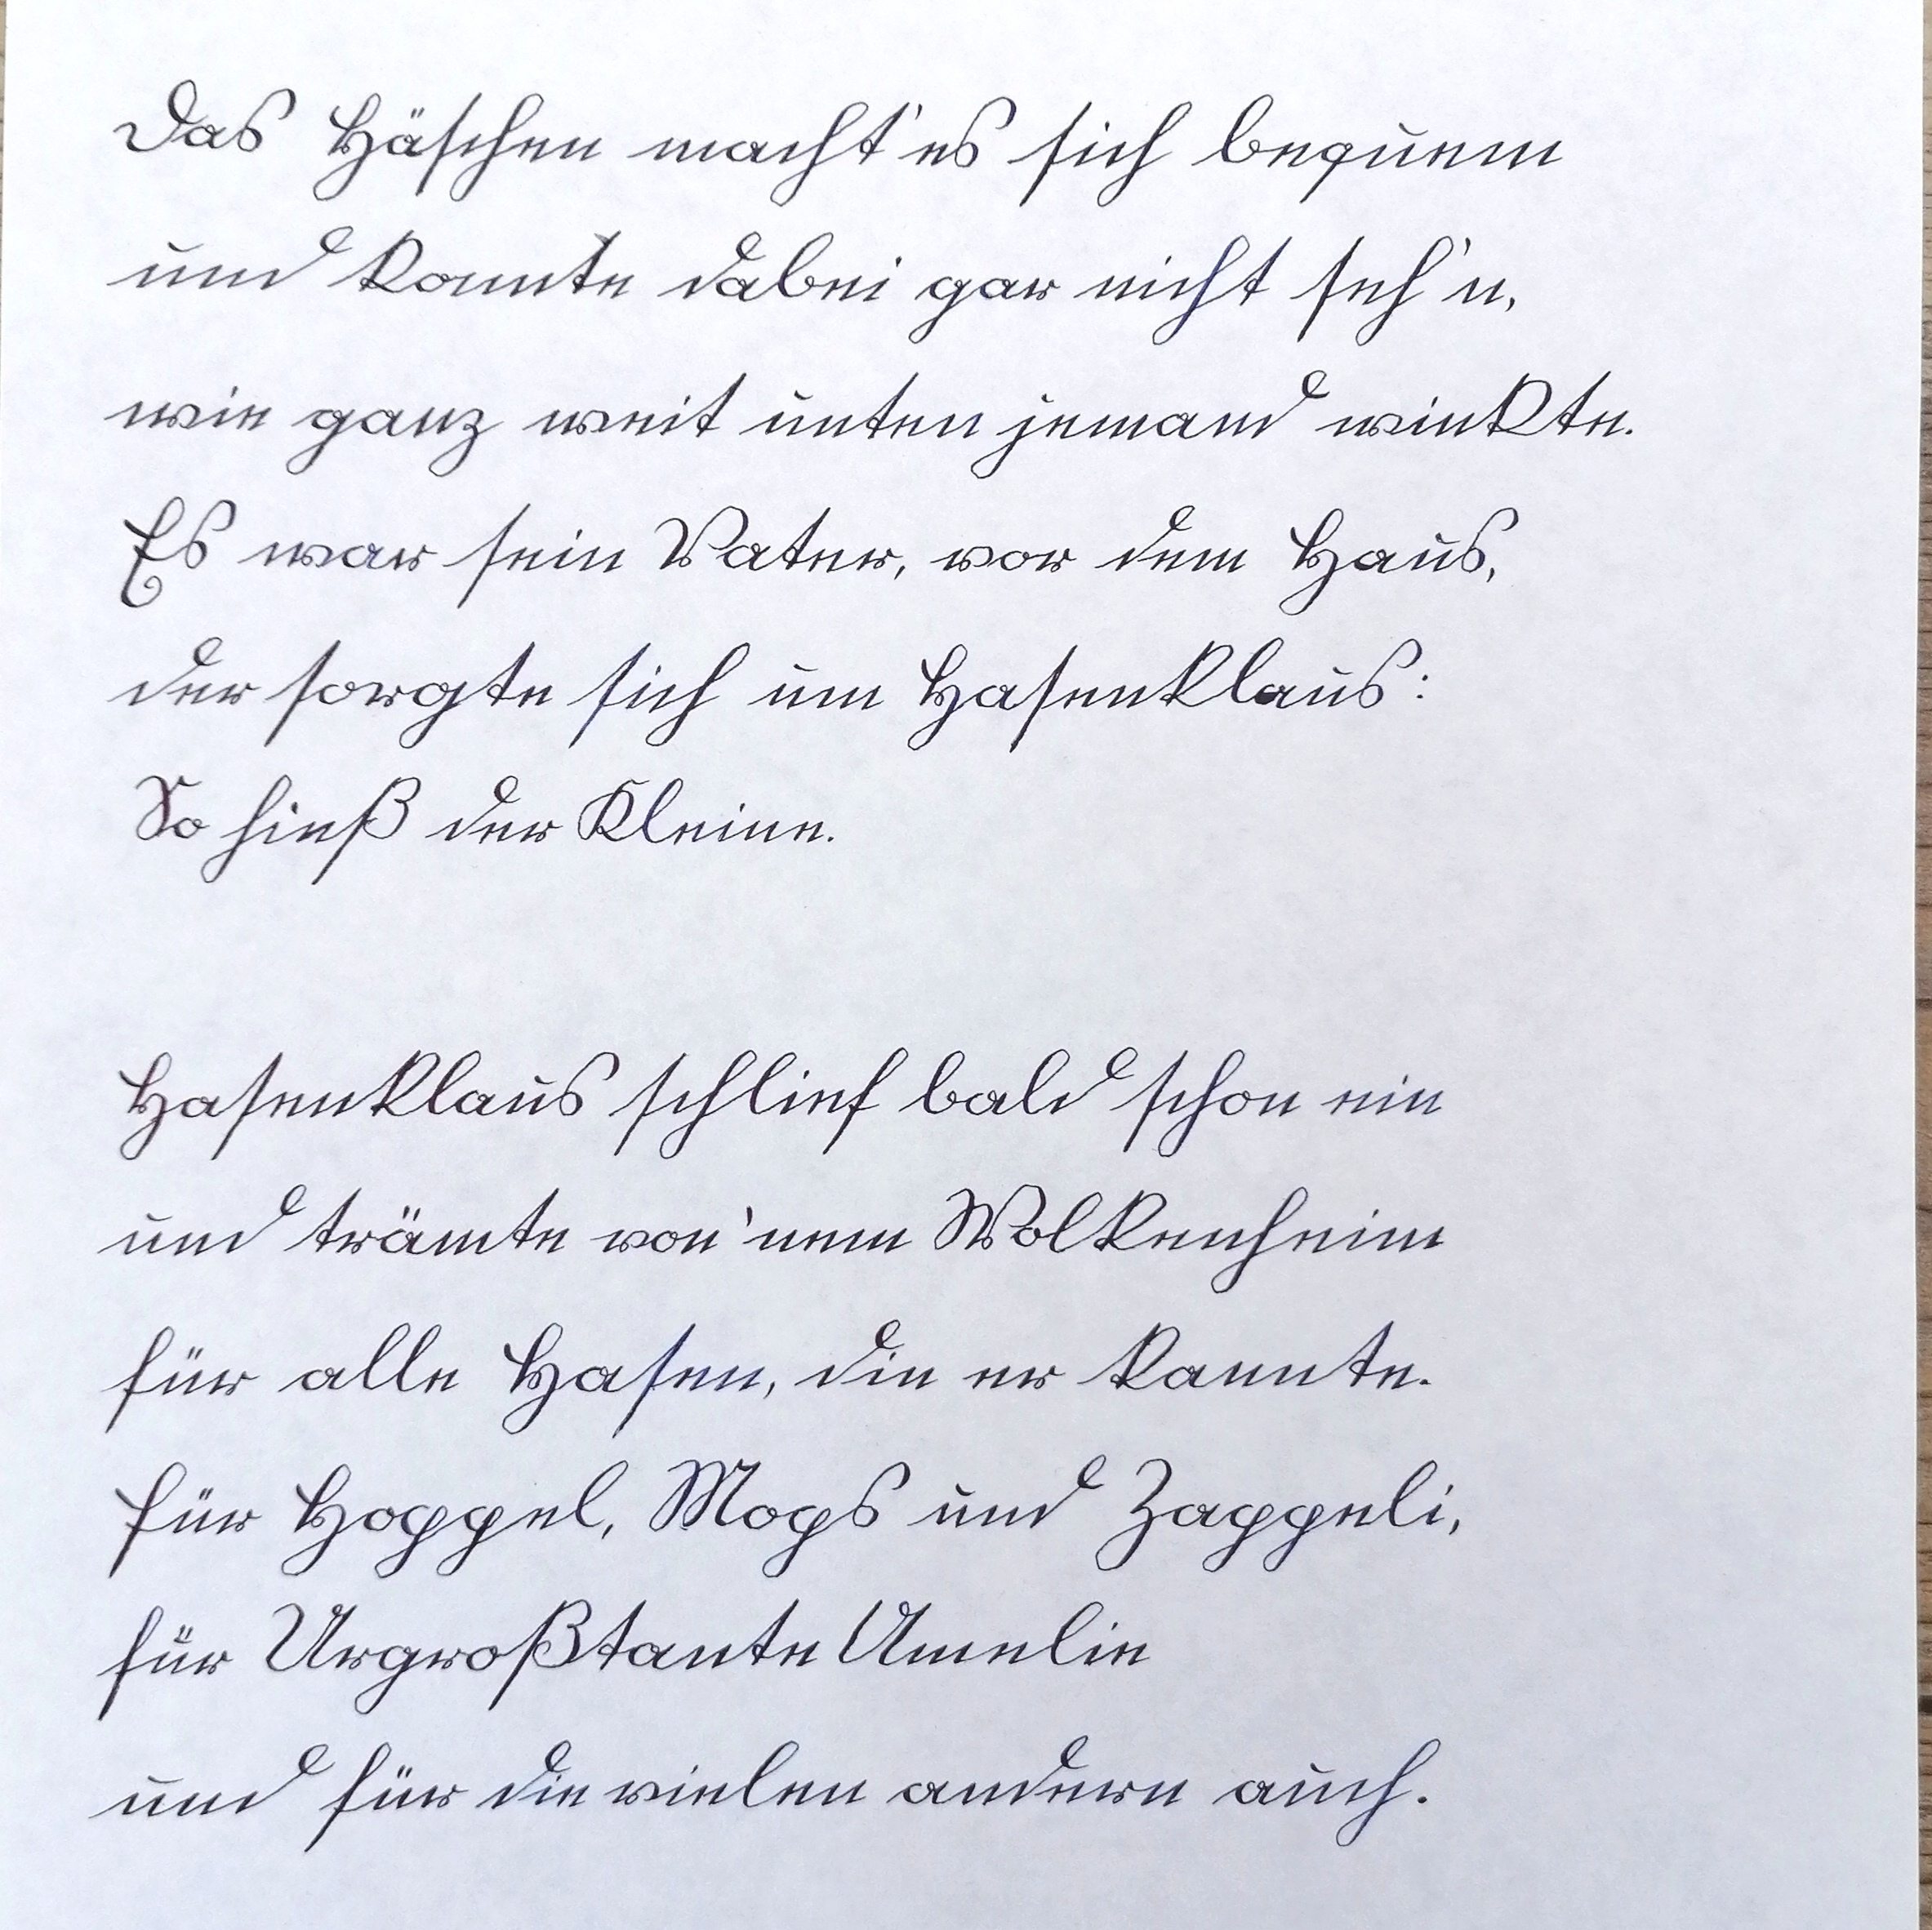 Das Häschen macht' es sich bequem
und konnte dabei gar nicht seh'n,
wie ganz weit unten jemand winkte.
Es war sein Vater, vor dem Haus,
der sorgte sich um Hasenklaus:
So hieß der Kleine.
Hasenklaus schlief bald schon ein
und trämte von 'nem Wolkenheim
für alle Hasen, die er kannte.
für Hoppel, Mops und Zappeli,
für Urgroßtante Amelie
und für die vielen andern auch.